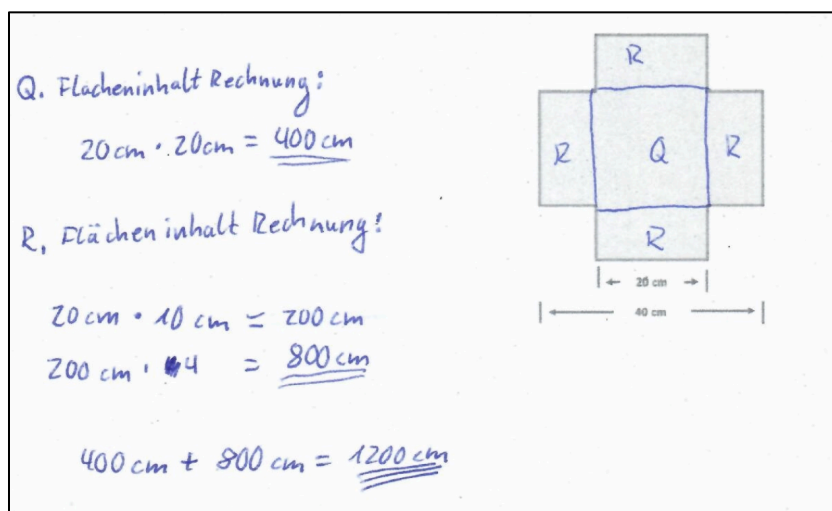 Q. Flächeninhalt Rechnung:
20 cm · 20 cm = 400 cm
R. Flächeninhalt Rechnung!
20 cm · 10 cm = 200 cm
200 cm · 4 = 800 cm
400 cm + 800 cm = 1200 cm
R
R Q R
R
20 cm
40 cm